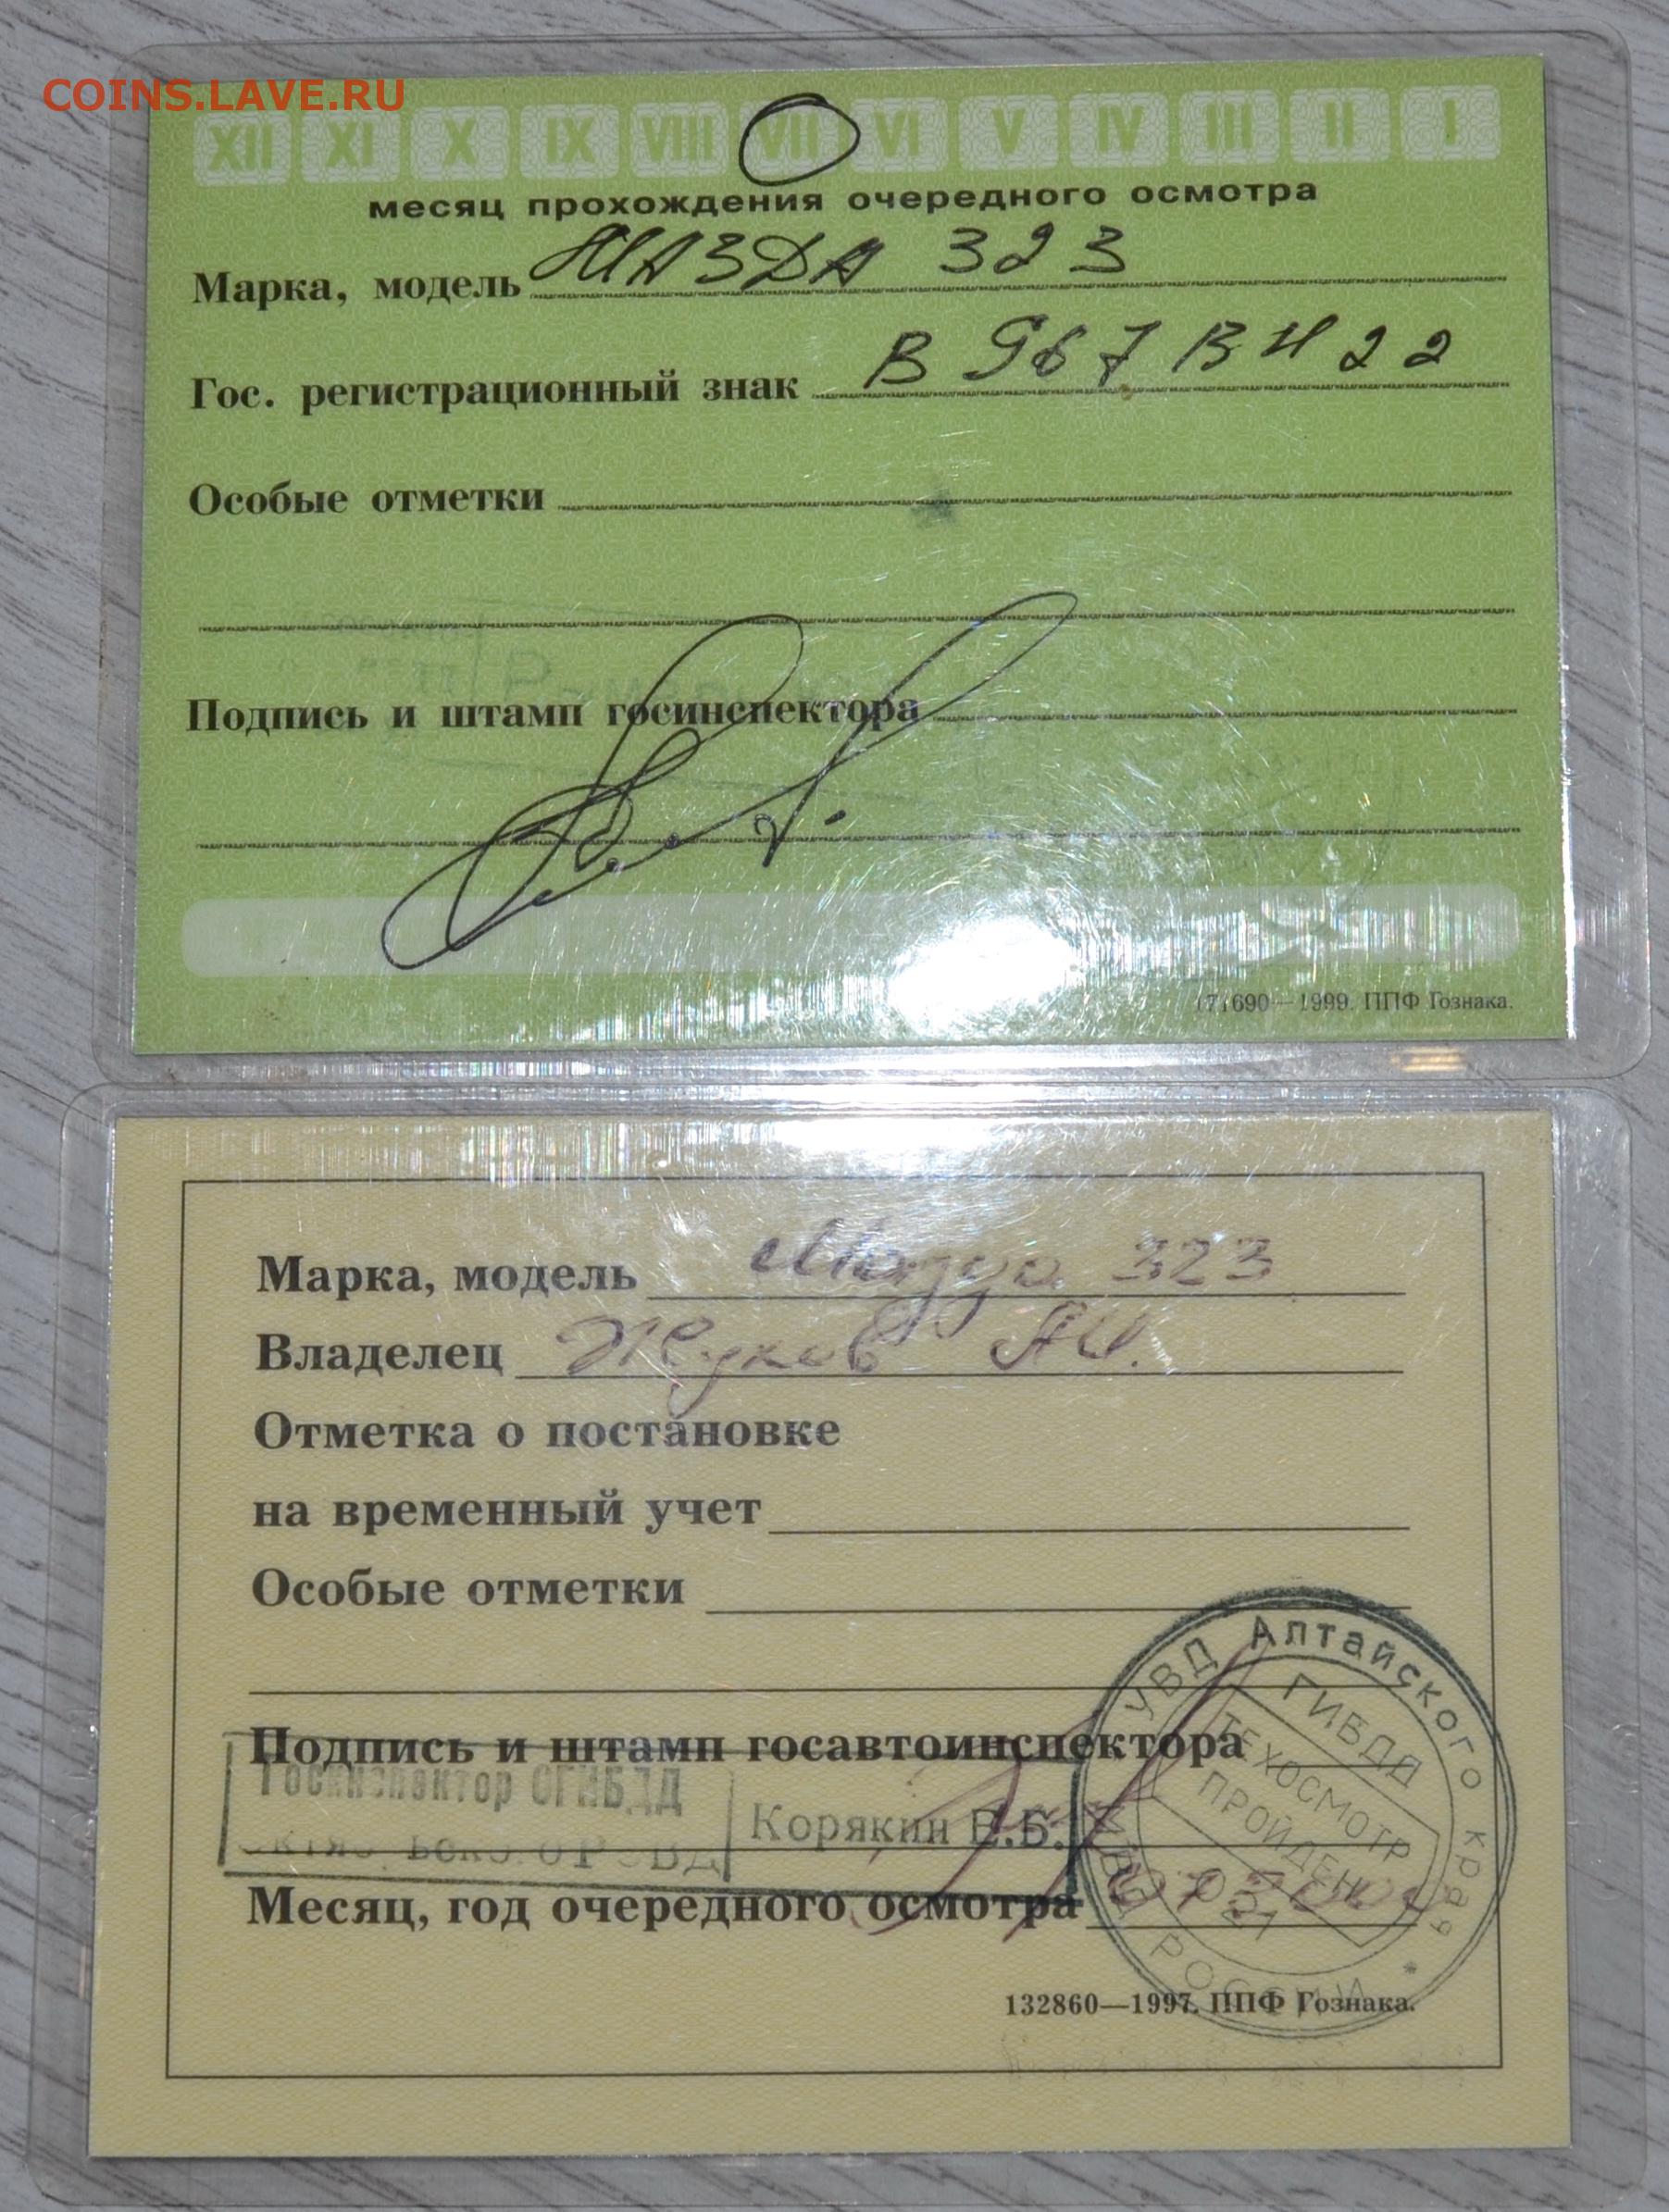 COINS.LAVE.RU
XII XI X IX VIII VII VI V IV III II I
месяц прохождения очередного осмотра
Марка, модель МАЗДА 323
Гос. регистрационный знак В 967 ВН 22
Особые отметки
Подпись и штамп госинспектора
171690—1999. ППФ Гознака.
Марка, модель Мазда 323
Владелец Жуков А.И.
Отметка о постановке
на временный учет
Особые отметки
УВД Алтайского края * РОССИИ
ГИБДД
ТЕХОСМОТР
ПРОЙДЕН
Подпись и штамп госавтоинспектора
Госинспектор ОГИБДД
Корякин Е.Б.
Месяц, год очередного осмотра
132860—1997. ППФ Гознака.